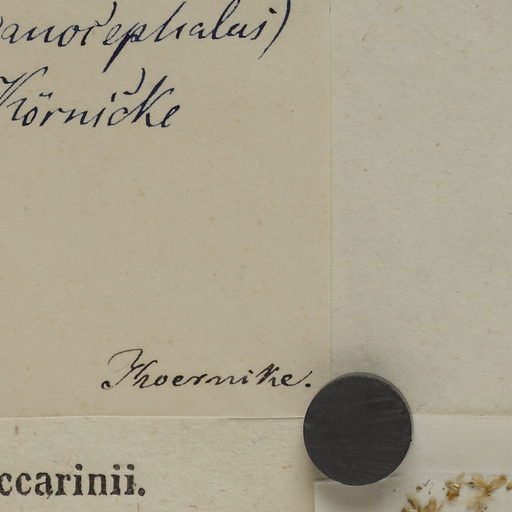 anocephalus)
Körnicke
Fkoernike.
ccarinii.